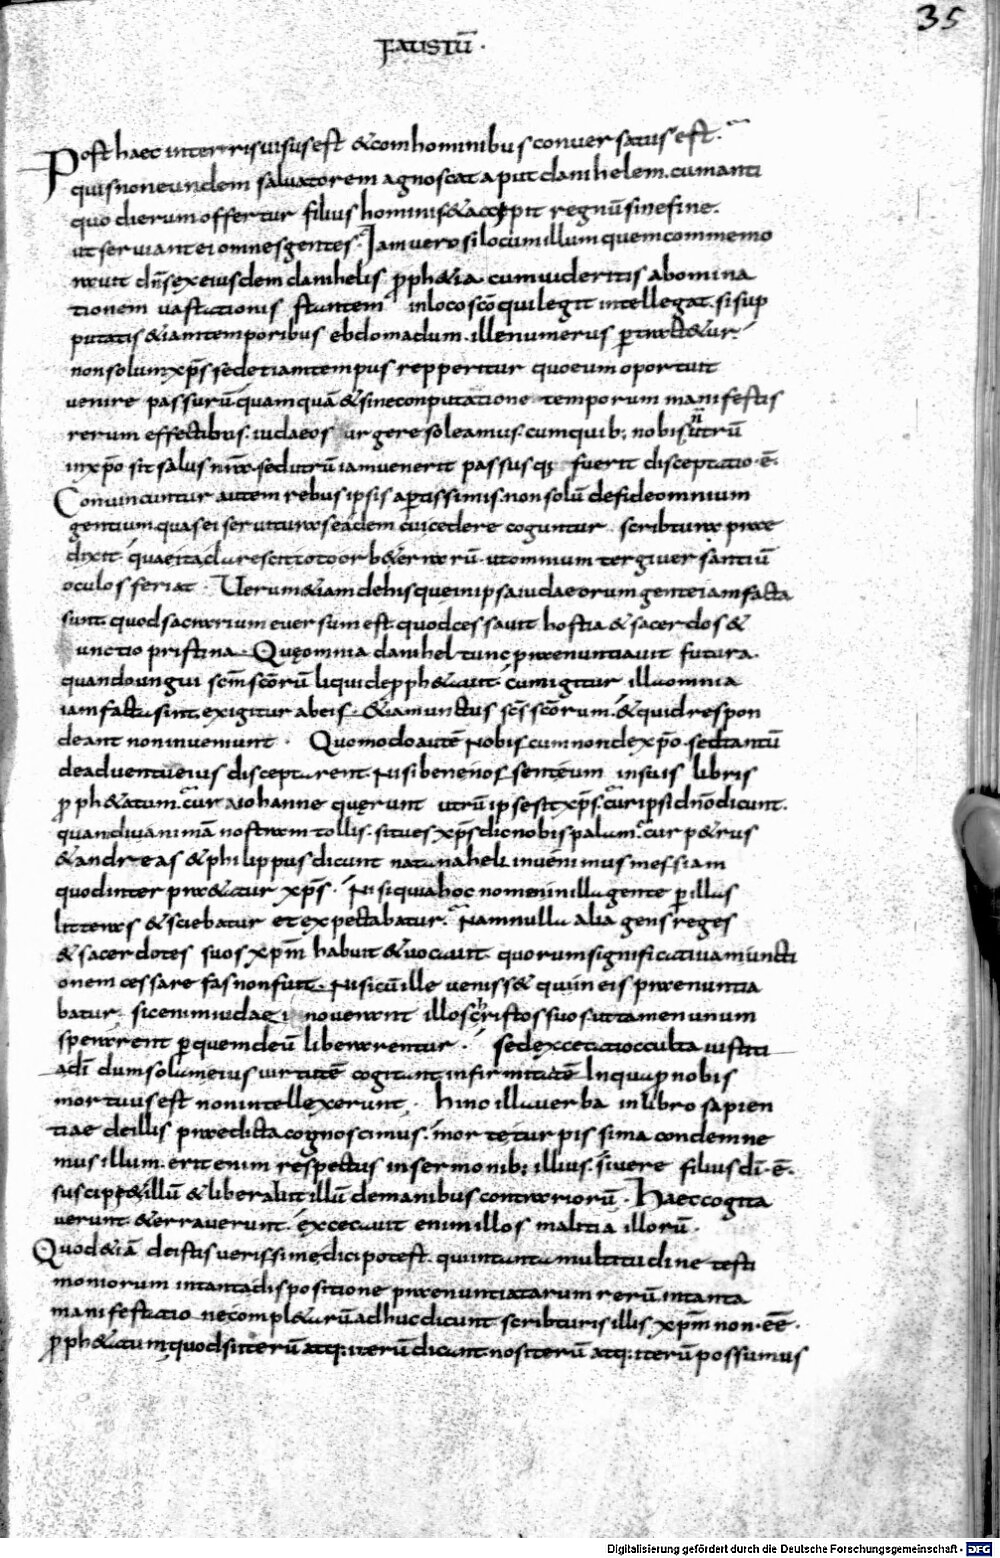 35
FAUSTŪ·
Post haec interris uisus est & com hominibus conuersatus est.
quis non eundem saluatorem agnoscat aput danihelem. cum anti
quo dierum offertur filius hominis & accepit regnū sine fine.
ut seruiant ei omnes gentes. Iam uero si locum illum quem commemo
rauit dn̄s ex eiusdem danihelis proph&ia. cum uideritis abomina
tionem uastationis stantem in loco sc̄o qui legit intellegat. si sup
putatis & iam temporibus ebdomadum. ille numerus pertract&ur.
non solum xp̄s sed etiam tempus repperitur quo eum oportuit
uenire passurū quamquā & sine conputatione temporum manifestis
rerum effectibus. iudaeos urgere soleamus. cum quib; nobis n̄ utrū
in xp̄o sit salus nr̄a. sed utrū iam uenerit passusq; fuerit disceptatio·ē·
Conuincuntur autem rebus ipsis apertissimis. non solū de fide omnium
gentium. quas ei seruituras eadem cui cedere coguntur scribtura prae
dixit. quae ita clarescit toto orbe terrarū. ut omnium tergiuersantiū
oculos feriat. Uerum & iam de his que in ipsa iudaeorum gente iam facta
sunt. quod sacrarium euersum est. quod cessauit hostia & sacerdos &
unctio pristina. Quę omnia danihel tunc praenuntiauit futura.
quando ungui sc̄m sc̄orū liquide proph&auit. cum igitur illa omnia
iam facta sint. exigitur ab eis. & iam unctus sc̄s sc̄orum. & quid respon
deant non inueniunt. Quomodo autē nobiscum non de xp̄o. sed tantū
de aduentu eius disceptarent. Nisi bene nossent eum in suis libris
proph&atum. cur a iohanne quęrunt utrū ipse sit xp̄s. cur ipsi dn̄o dicunt.
quandiu animā nostram tollis. si tu es xp̄s dic nobis palam. cur p&rus
& andreas & philippus dicunt natanaheli. inuenimus messiam
quod interpra&atur xp̄s. Nisi quia hoc nomen in illa gente per illas
litteras & sciebatur et expectabatur. Nam nulla alia gens reges
& sacerdotes suos xp̄m habuit & uocauit. quorum significatiuam uncti
onem cessare fas non fuit. Nisi cū ille uenisset qui in eis praenuntia
batur. sic enim iudaei nouerant illos christos suos. ut tamen unum
sperarent per quem deū liberarentur. sed excecati occulta iustiti
a dī dum solum eius uirtutē cogitant infirmitatē In qua pro nobis
mortuus est non intellexerunt. hinc illa uerba in libro sapien
tiae de illis praedicta cognoscimus. morte turpissima condemne
mus illum. erit enim respectus in sermonib; illius. si uere filius dī·ē·
suscipi&illū & liberabit illū de manibus contrariorū. Haec cogita
uerunt. & errauerunt. excecauit enim illos malitia illorū.
Quod &iā de istis uerissime dici potest. qui in tanta multitudine testi
moniorum in tanta dispositione praenuntiatarum rerū. in tanta
manifestatio ne compl&arū adhuc dicunt scribturis illis xp̄m non·ēē·
proph&atum. quod si iterū atq; iterū dicant. nos iterū atq; iterū possumus
Digitalisierung gefördert durch die Deutsche Forschungsgemeinschaft - DFG